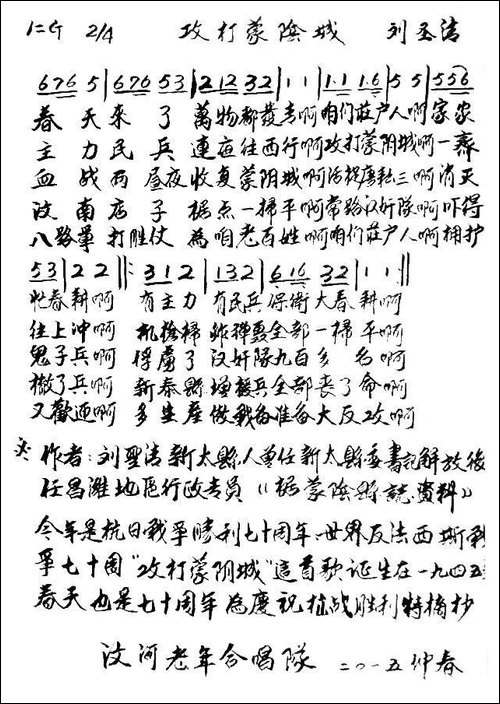 1=G 2/4 攻打蒙陰城 刘圣清
676 5|676 53|2 12 32|1 1|1.1 1.6|5 5|556
春天来了萬物都發青啊咱们莊户人啊家家
主力民兵連夜往西行啊攻打蒙阴城啊一齊
血战两昼夜收复蒙阴城啊活捉唐三啊消灭
汶南店子据点一掃平啊常路汉奸隊啊吓得
八路軍打胜仗為咱老百姓啊咱们莊户人啊拥护
53|2 2‖:312|132|616 32|1 1:‖
忙春耕啊 有主力有民兵保衛大春耕啊
往上冲啊 机槍掃炸彈轟全部一掃平啊
鬼子兵啊 俘虜了汉奸隊九百多名啊
撤了兵啊 新泰縣增援兵全部丧了命啊
又歡迎啊 多生產做战备准备大反攻啊
作者:刘聖清新太縣人曾任新太縣委書記解放後
任昌濰地區行政专员《据蒙陰縣誌资料》
今年是抗日戰爭勝利七十周年世界反法西斯戰
爭七十周"攻打蒙阴城"這首歌诞生在一九四五
春天也是七十周年為慶祝抗战胜利特摘抄
汶河老年合唱隊 二〇一五仲春